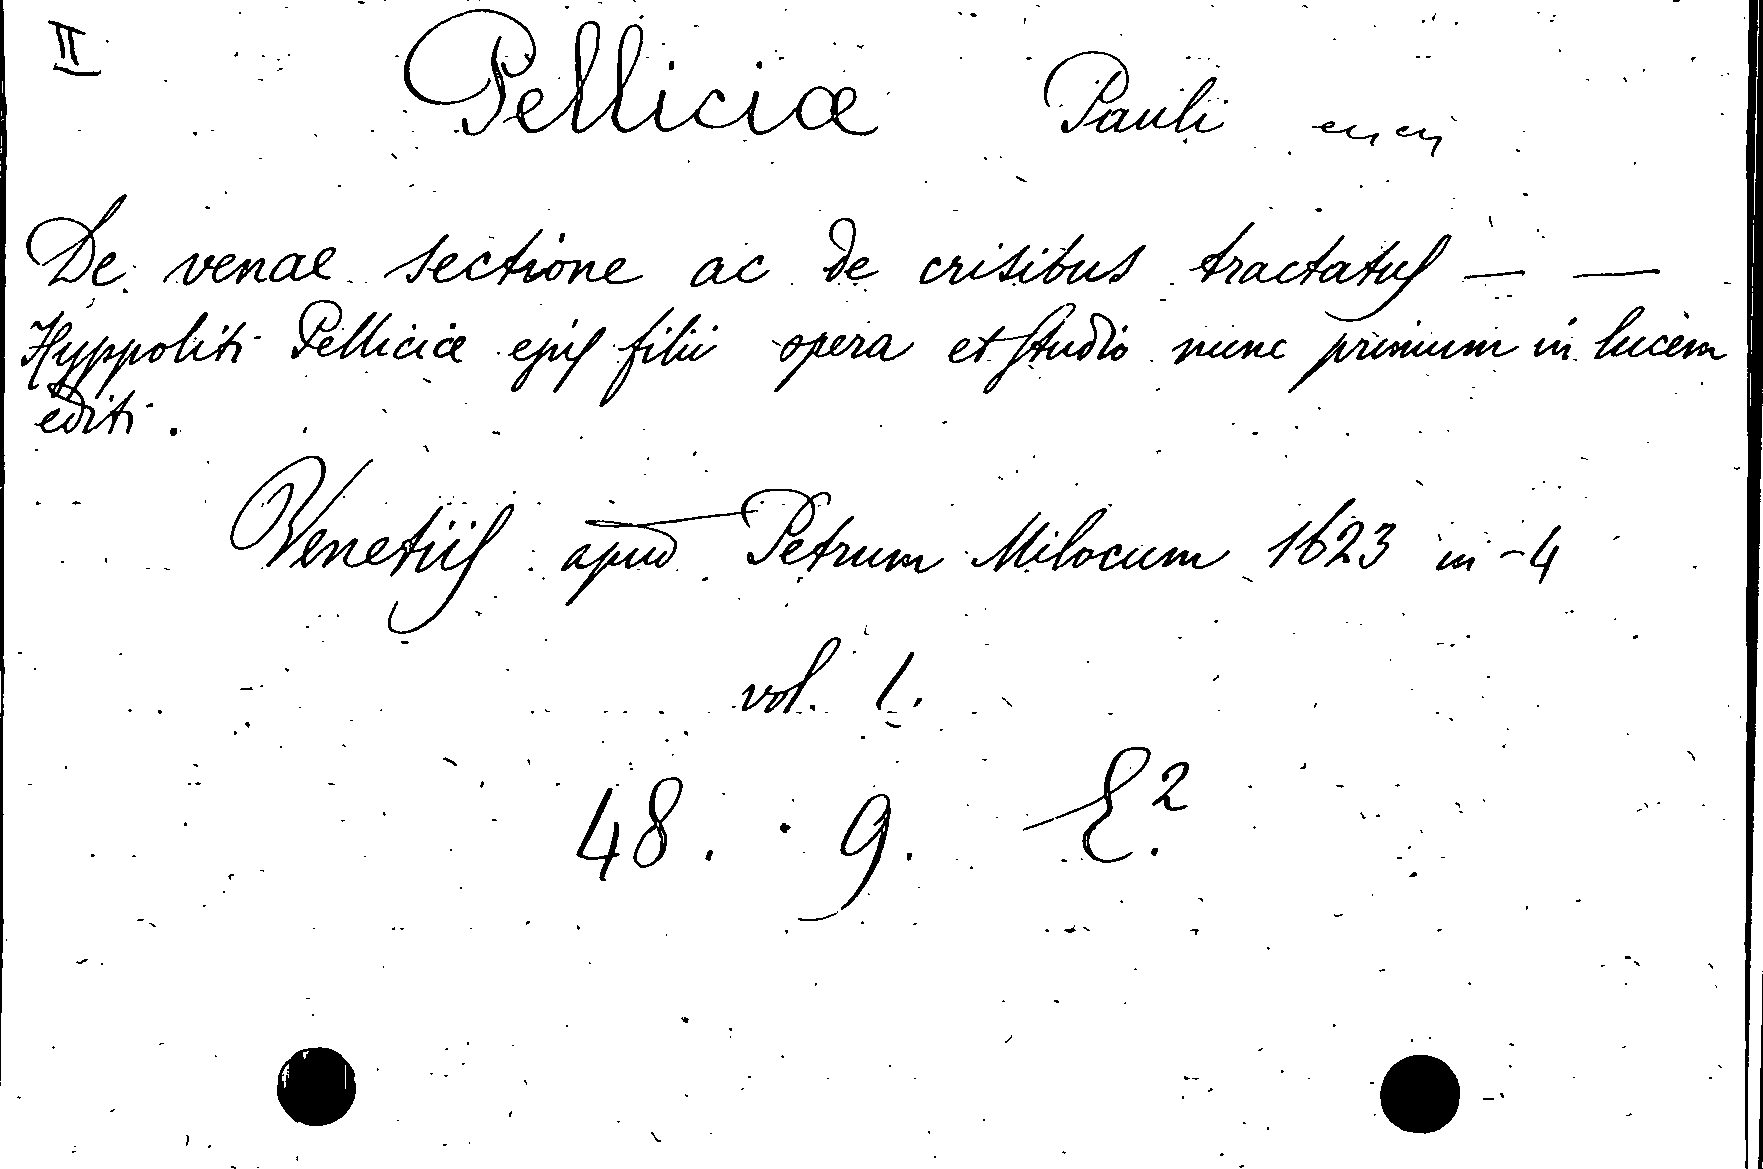 II
Pelliciæ Pauli
De venae sectione ac de crisibus tractatus — —
Hyppoliti Pelliciæ ejus filii opera et studio nunc primum in lucem
editi.
Venetiis apud Petrum Milocum 1623 in-4
vol. 1.
48. 9. E.²